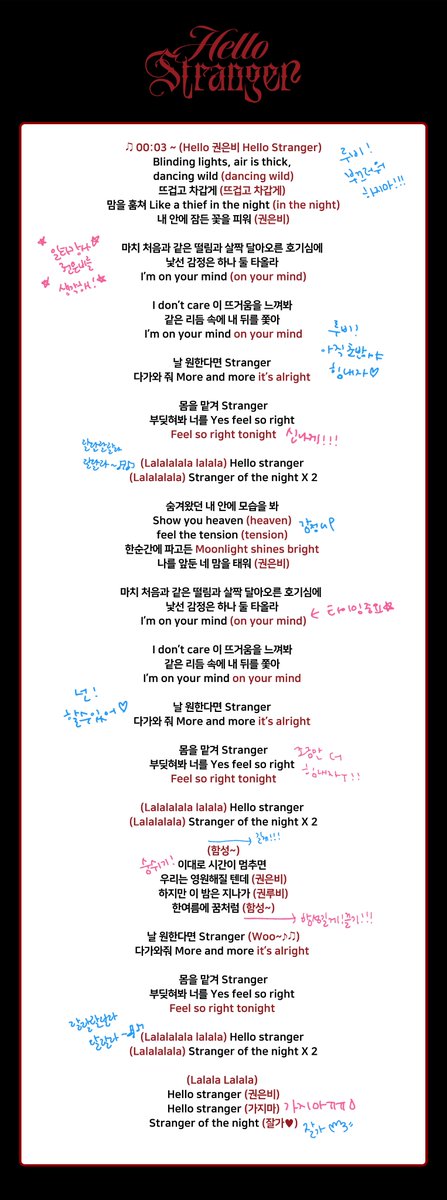 Hello
Stranger
♫ 00:03 ~ (Hello 권은비 Hello Stranger)
Blinding lights, air is thick,
dancing wild (dancing wild)
뜨겁고 차갑게 (뜨겁고 차갑게)
맘을 훔쳐 Like a thief in the night (in the night)
내 안에 잠든 꽃을 피워 (권은비)
루비!
부끄러워
하지마!!!
마치 처음과 같은 떨림과 살짝 달아오른 호기심에
낯선 감정은 하나 둘 타올라
I'm on your mind (on your mind)
권은비를
생각해!
I don't care 이 뜨거움을 느껴봐
같은 리듬 속에 내 뒤를 쫓아
I'm on your mind on your mind
루비!
아직 초반이야
힘내자♡
날 원한다면 Stranger
다가와 줘 More and more it's alright
몸을 맡겨 Stranger
부딪혀봐 너를 Yes feel so right
Feel so right tonight 신나게!!!
랄란란랄라
랄란라~♫♪
(Lalalalala lalala) Hello stranger
(Lalalalala) Stranger of the night X 2
숨겨왔던 내 안에 모습을 봐
Show you heaven (heaven)
feel the tension (tension) 감정 UP
한순간에 파고든 Moonlight shines bright
나를 앞둔 네 맘을 태워 (권은비)
마치 처음과 같은 떨림과 살짝 달아오른 호기심에
낯선 감정은 하나 둘 타올라
I'm on your mind (on your mind) ← 타이밍 중요☆
I don't care 이 뜨거움을 느껴봐
같은 리듬 속에 내 뒤를 쫓아
I'm on your mind on your mind
넌!
할 수 있어♡
날 원한다면 Stranger
다가와 줘 More and more it's alright
몸을 맡겨 Stranger
부딪혀봐 너를 Yes feel so right
Feel so right tonight
조금만 더
힘내자!!
(Lalalalala lalala) Hello stranger
(Lalalalala) Stranger of the night X 2
(함성~) → 길게!!!
숨쉬기! 이대로 시간이 멈추면
우리는 영원해질 텐데 (권은비)
하지만 이 밤은 지나가 (권루비)
한여름에 꿈처럼 (함성~)
→ 함성 길게! 끌기!!!
날 원한다면 Stranger (Woo~♪♫)
다가와줘 More and more it's alright
몸을 맡겨 Stranger
부딪혀봐 너를 Yes feel so right
Feel so right tonight
랄란란랄라
랄란라~♫♪
(Lalalalala lalala) Hello stranger
(Lalalalala) Stranger of the night X 2
(Lalala Lalala)
Hello stranger (권은비)
Hello stranger (가지마) 가지마ㅠㅠ
Stranger of the night (잘가♥) 잘가